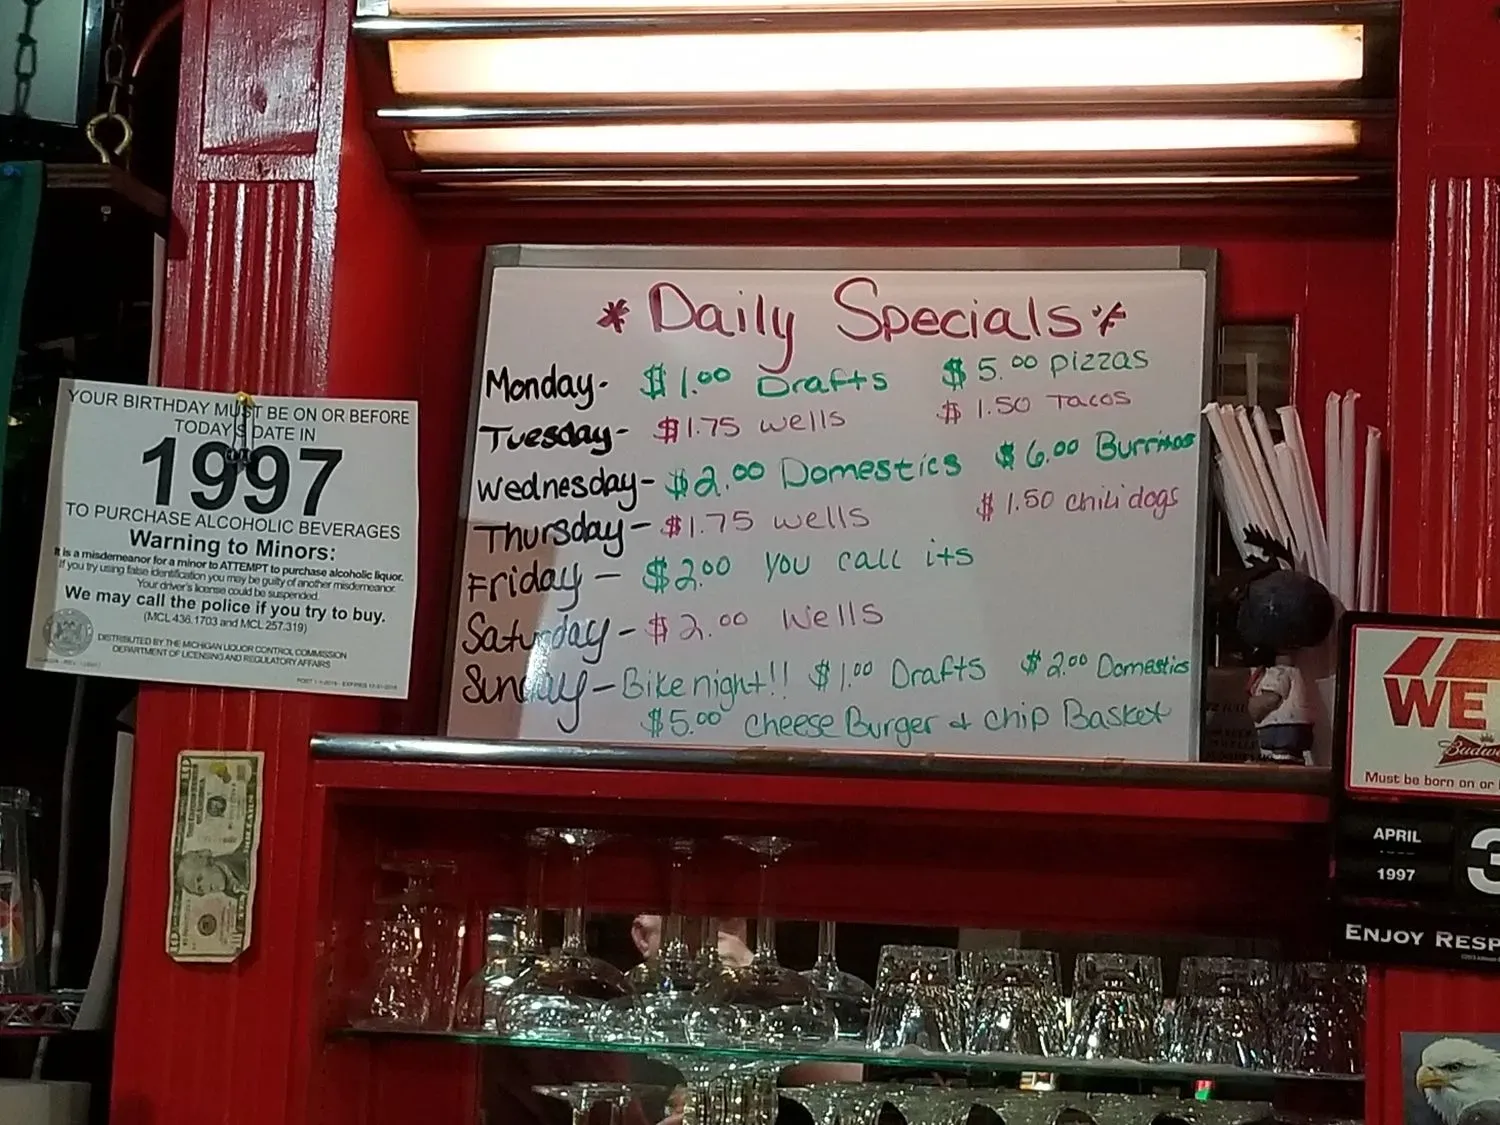 * Daily Specials *
Monday- $1.00 Drafts $5.00 pizzas
Tuesday- $1.75 wells $1.50 Tacos
Wednesday- $2.00 Domestics $6.00 Burritos
Thursday- $1.75 wells $1.50 chili dogs
Friday - $2.00 you call its
Saturday - $2.00 Wells
Sunday - Bike night!! $1.00 Drafts $2.00 Domestics
$5.00 cheese Burger + chip Basket
YOUR BIRTHDAY MUST BE ON OR BEFORE
TODAY'S DATE IN
1997
TO PURCHASE ALCOHOLIC BEVERAGES
Warning to Minors:
It is a misdemeanor for a minor to ATTEMPT to purchase alcoholic liquor.
If you try using false identification you may be guilty of another misdemeanor.
Your driver's license could be suspended.
We may call the police if you try to buy.
(MCL 436.1703 and MCL 257.319)
DISTRIBUTED BY THE MICHIGAN LIQUOR CONTROL COMMISSION
DEPARTMENT OF LICENSING AND REGULATORY AFFAIRS
WE
Budw
Must be born on or
APRIL
1997
3
ENJOY RESP